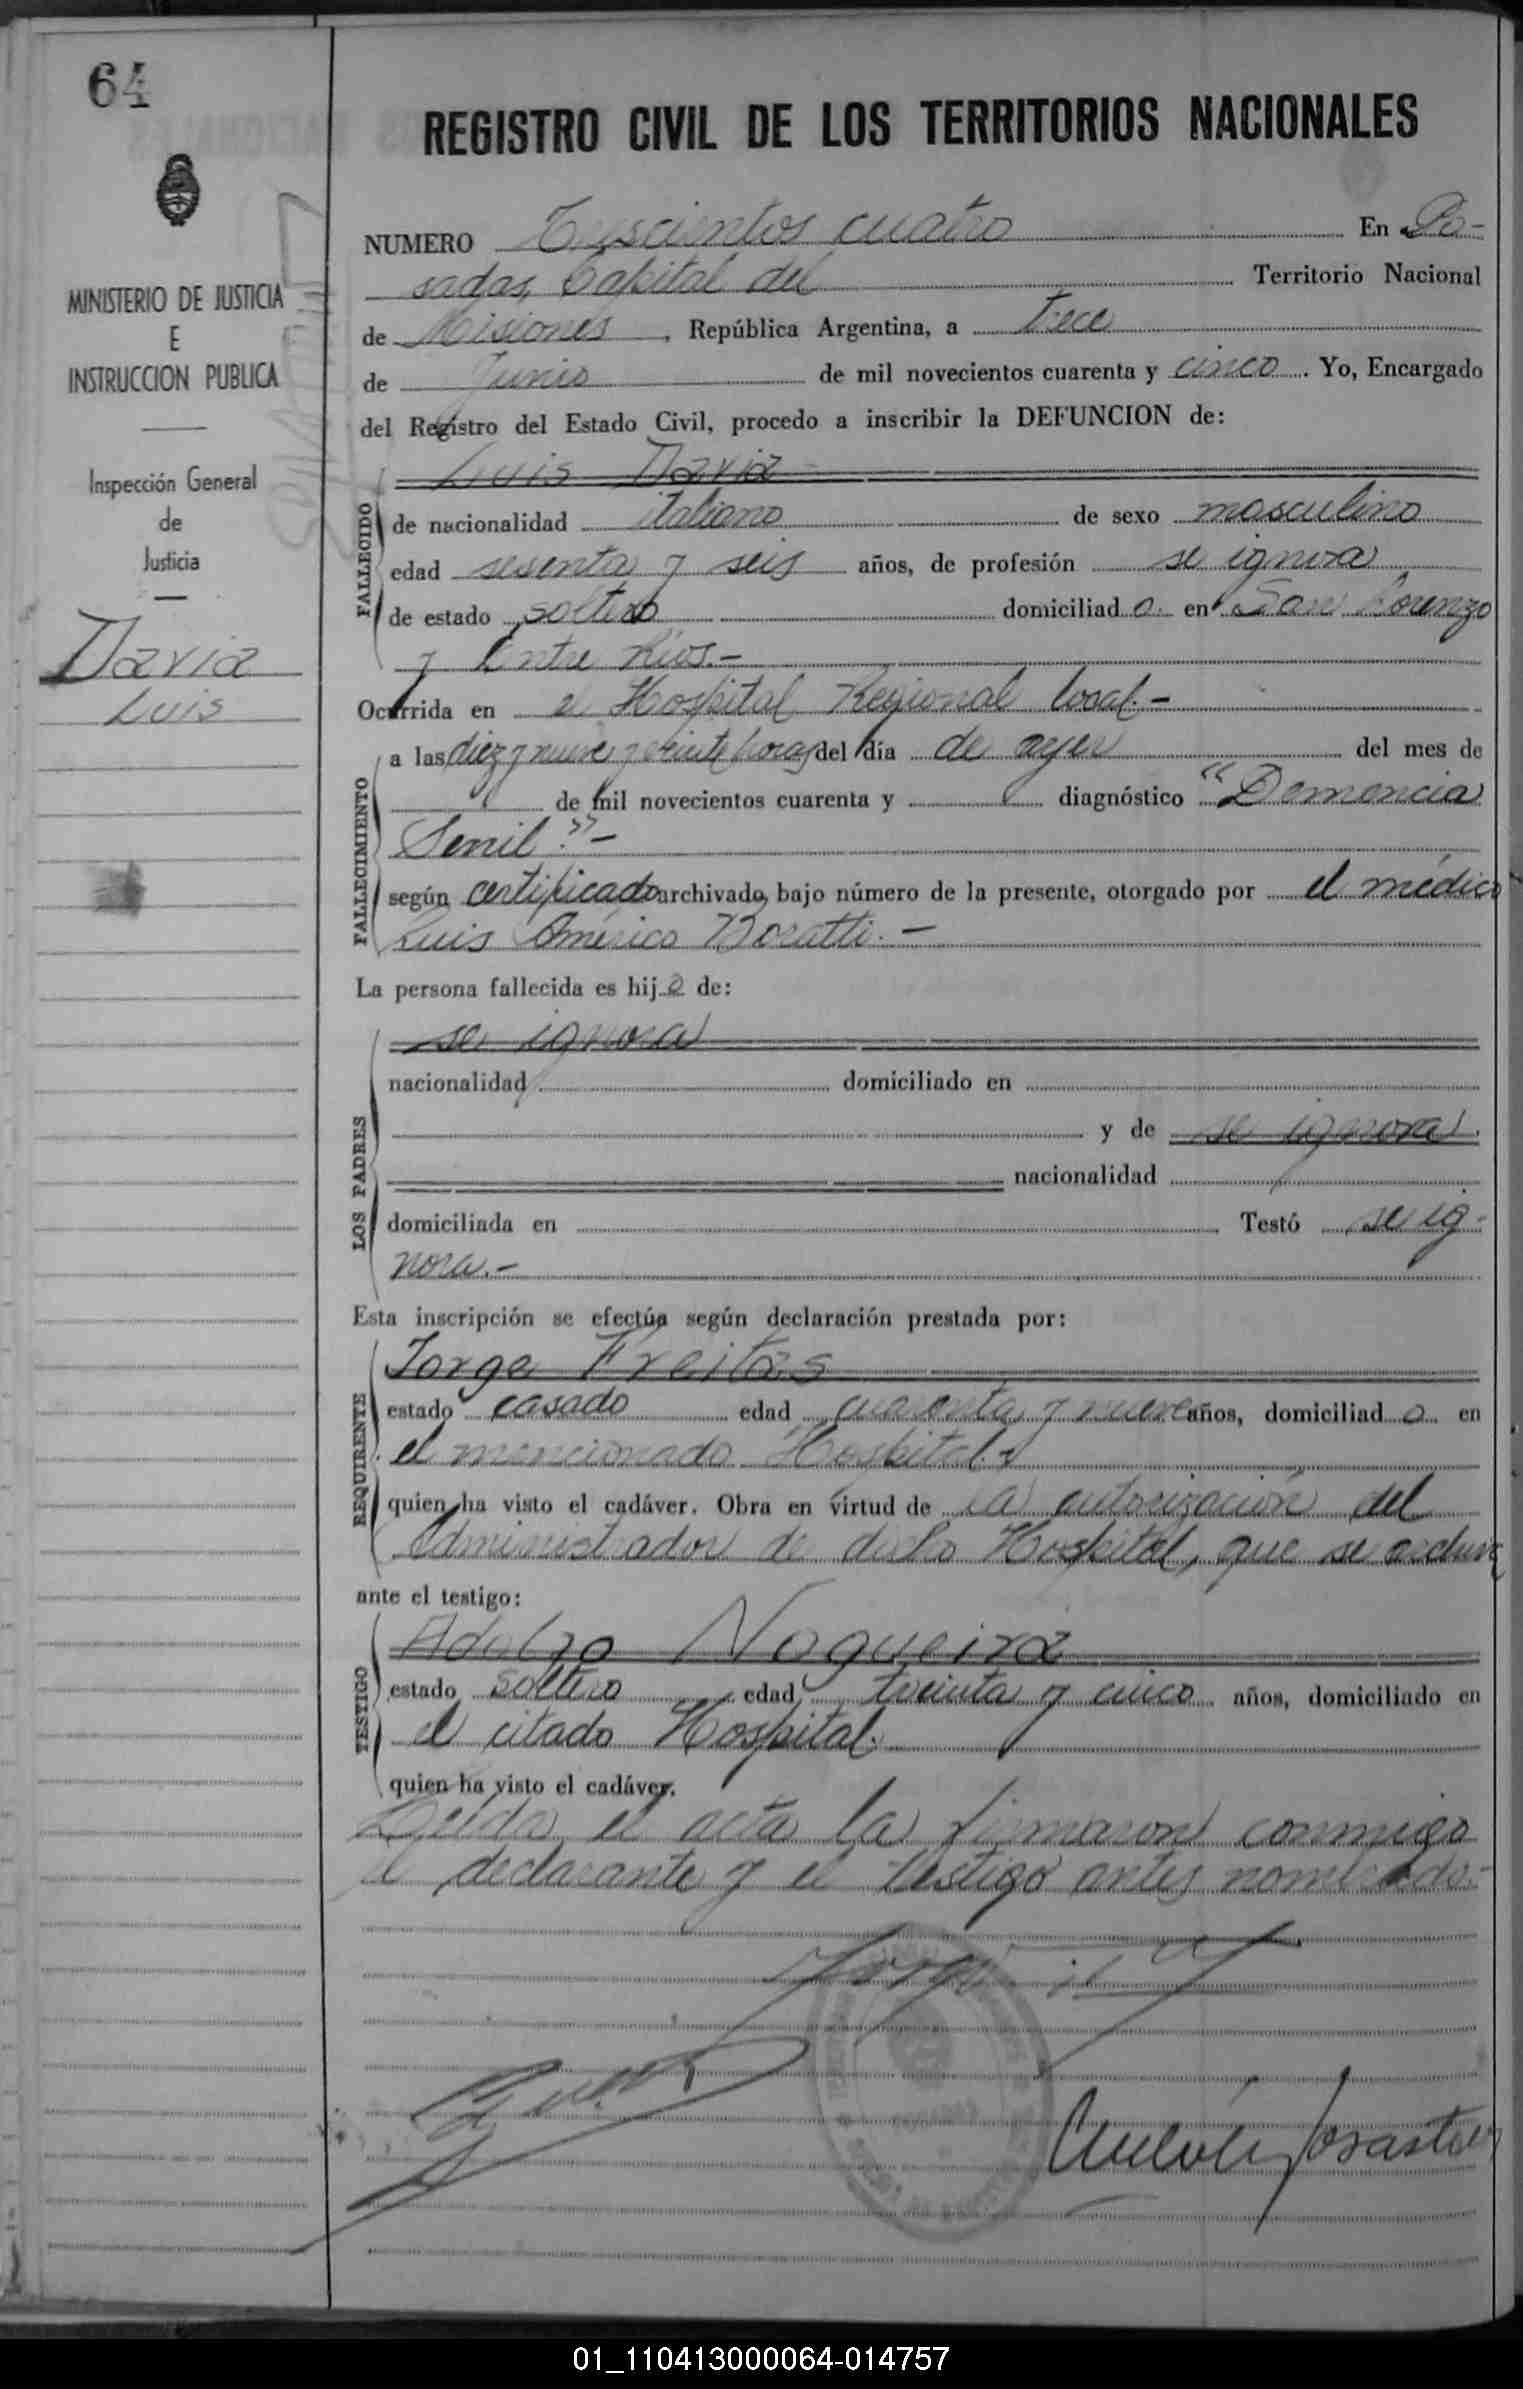 64
REGISTRO CIVIL DE LOS TERRITORIOS NACIONALES
MINISTERIO DE JUSTICIA
E
INSTRUCCION PUBLICA
Inspección General
de
Justicia
Davia
Luis
NUMERO Trescientos cuatro En Po-
sadas, Capital del Territorio Nacional
de Misiones, República Argentina, a trece
de Junio de mil novecientos cuarenta y cinco. Yo, Encargado
del Registro del Estado Civil, procedo a inscribir la DEFUNCION de:
Luis Davia
FALLECIDO
de nacionalidad italiano de sexo masculino
edad sesenta y seis años, de profesión se ignora
de estado soltero domiciliado en San Lorenzo
y Entre Ríos.-
Ocurrida en el Hospital Regional local.-
FALLECIMIENTO
a las diez y nueve y veinte horas del día de ayer del mes de
de mil novecientos cuarenta y diagnóstico "Demencia
Senil".-
según certificado archivado, bajo número de la presente, otorgado por el médico
Luis Américo Boratti.-
La persona fallecida es hijo de:
LOS PADRES
se ignora
nacionalidad domiciliado en
y de se ignora.
nacionalidad
domiciliada en Testó se ig-
nora.-
Esta inscripción se efectúa según declaración prestada por:
REQUIRENTE
Jorge Freitas
estado casado edad cuarenta y nueve años, domiciliado en
el mencionado Hospital.-
quien ha visto el cadáver. Obra en virtud de la autorización del
Administrador de dicho Hospital, que se archiva
ante el testigo:
TESTIGO
Adolfo Nogueira
estado soltero edad treinta y cinco años, domiciliado en
el citado Hospital.
quien ha visto el cadáver.
Leída el acta la firmaron conmigo
el declarante y el testigo antes nombrado.-
01_110413000064-014757